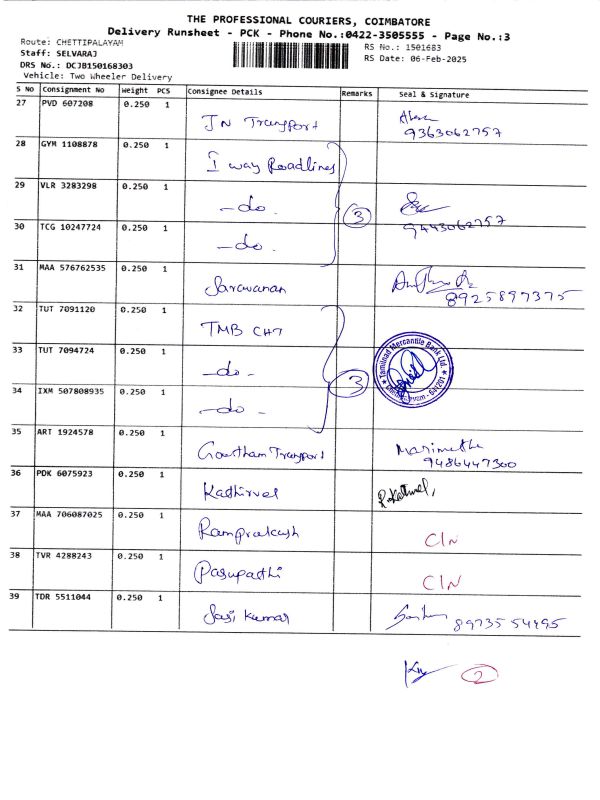 THE PROFESSIONAL COURIERS, COIMBATORE
Delivery Runsheet - PCK - Phone No.:0422-3505555 - Page No.:3
Route: CHETTIPALAYAM
Staff: SELVARAJ
DRS No.: DCJB150168303
Vehicle: Two Wheeler Delivery
RS No.: 1501683
RS Date: 06-Feb-2025
S NO Consignment No Weight PCS Consignee Details Remarks Seal & Signature
27 PVD 607208 0.250 1 JN Transport
9363062757
28 GYM 1108878 0.250 1 I way Roadlines
29 VLR 3283298 0.250 1 -do. 3
9443062757
30 TCG 10247724 0.250 1 -do.
31 MAA 576762535 0.250 1 Saravanan
8925897375
32 TUT 7091120 0.250 1 TMB CHT
33 TUT 7094724 0.250 1 -do- 3 Tamilnad Mercantile Bank Ltd.
34 IXM 507808935 0.250 1 -do-
35 ART 1924578 0.250 1 Goutham Transport Marimuthu
9486447300
36 PDK 6075923 0.250 1 Kadhirvel
37 MAA 706087025 0.250 1 Ramprakash C/N
38 TVR 4288243 0.250 1 Pasupathi C/N
39 TDR 5511044 0.250 1 Sasi kumar 89735 54995
2